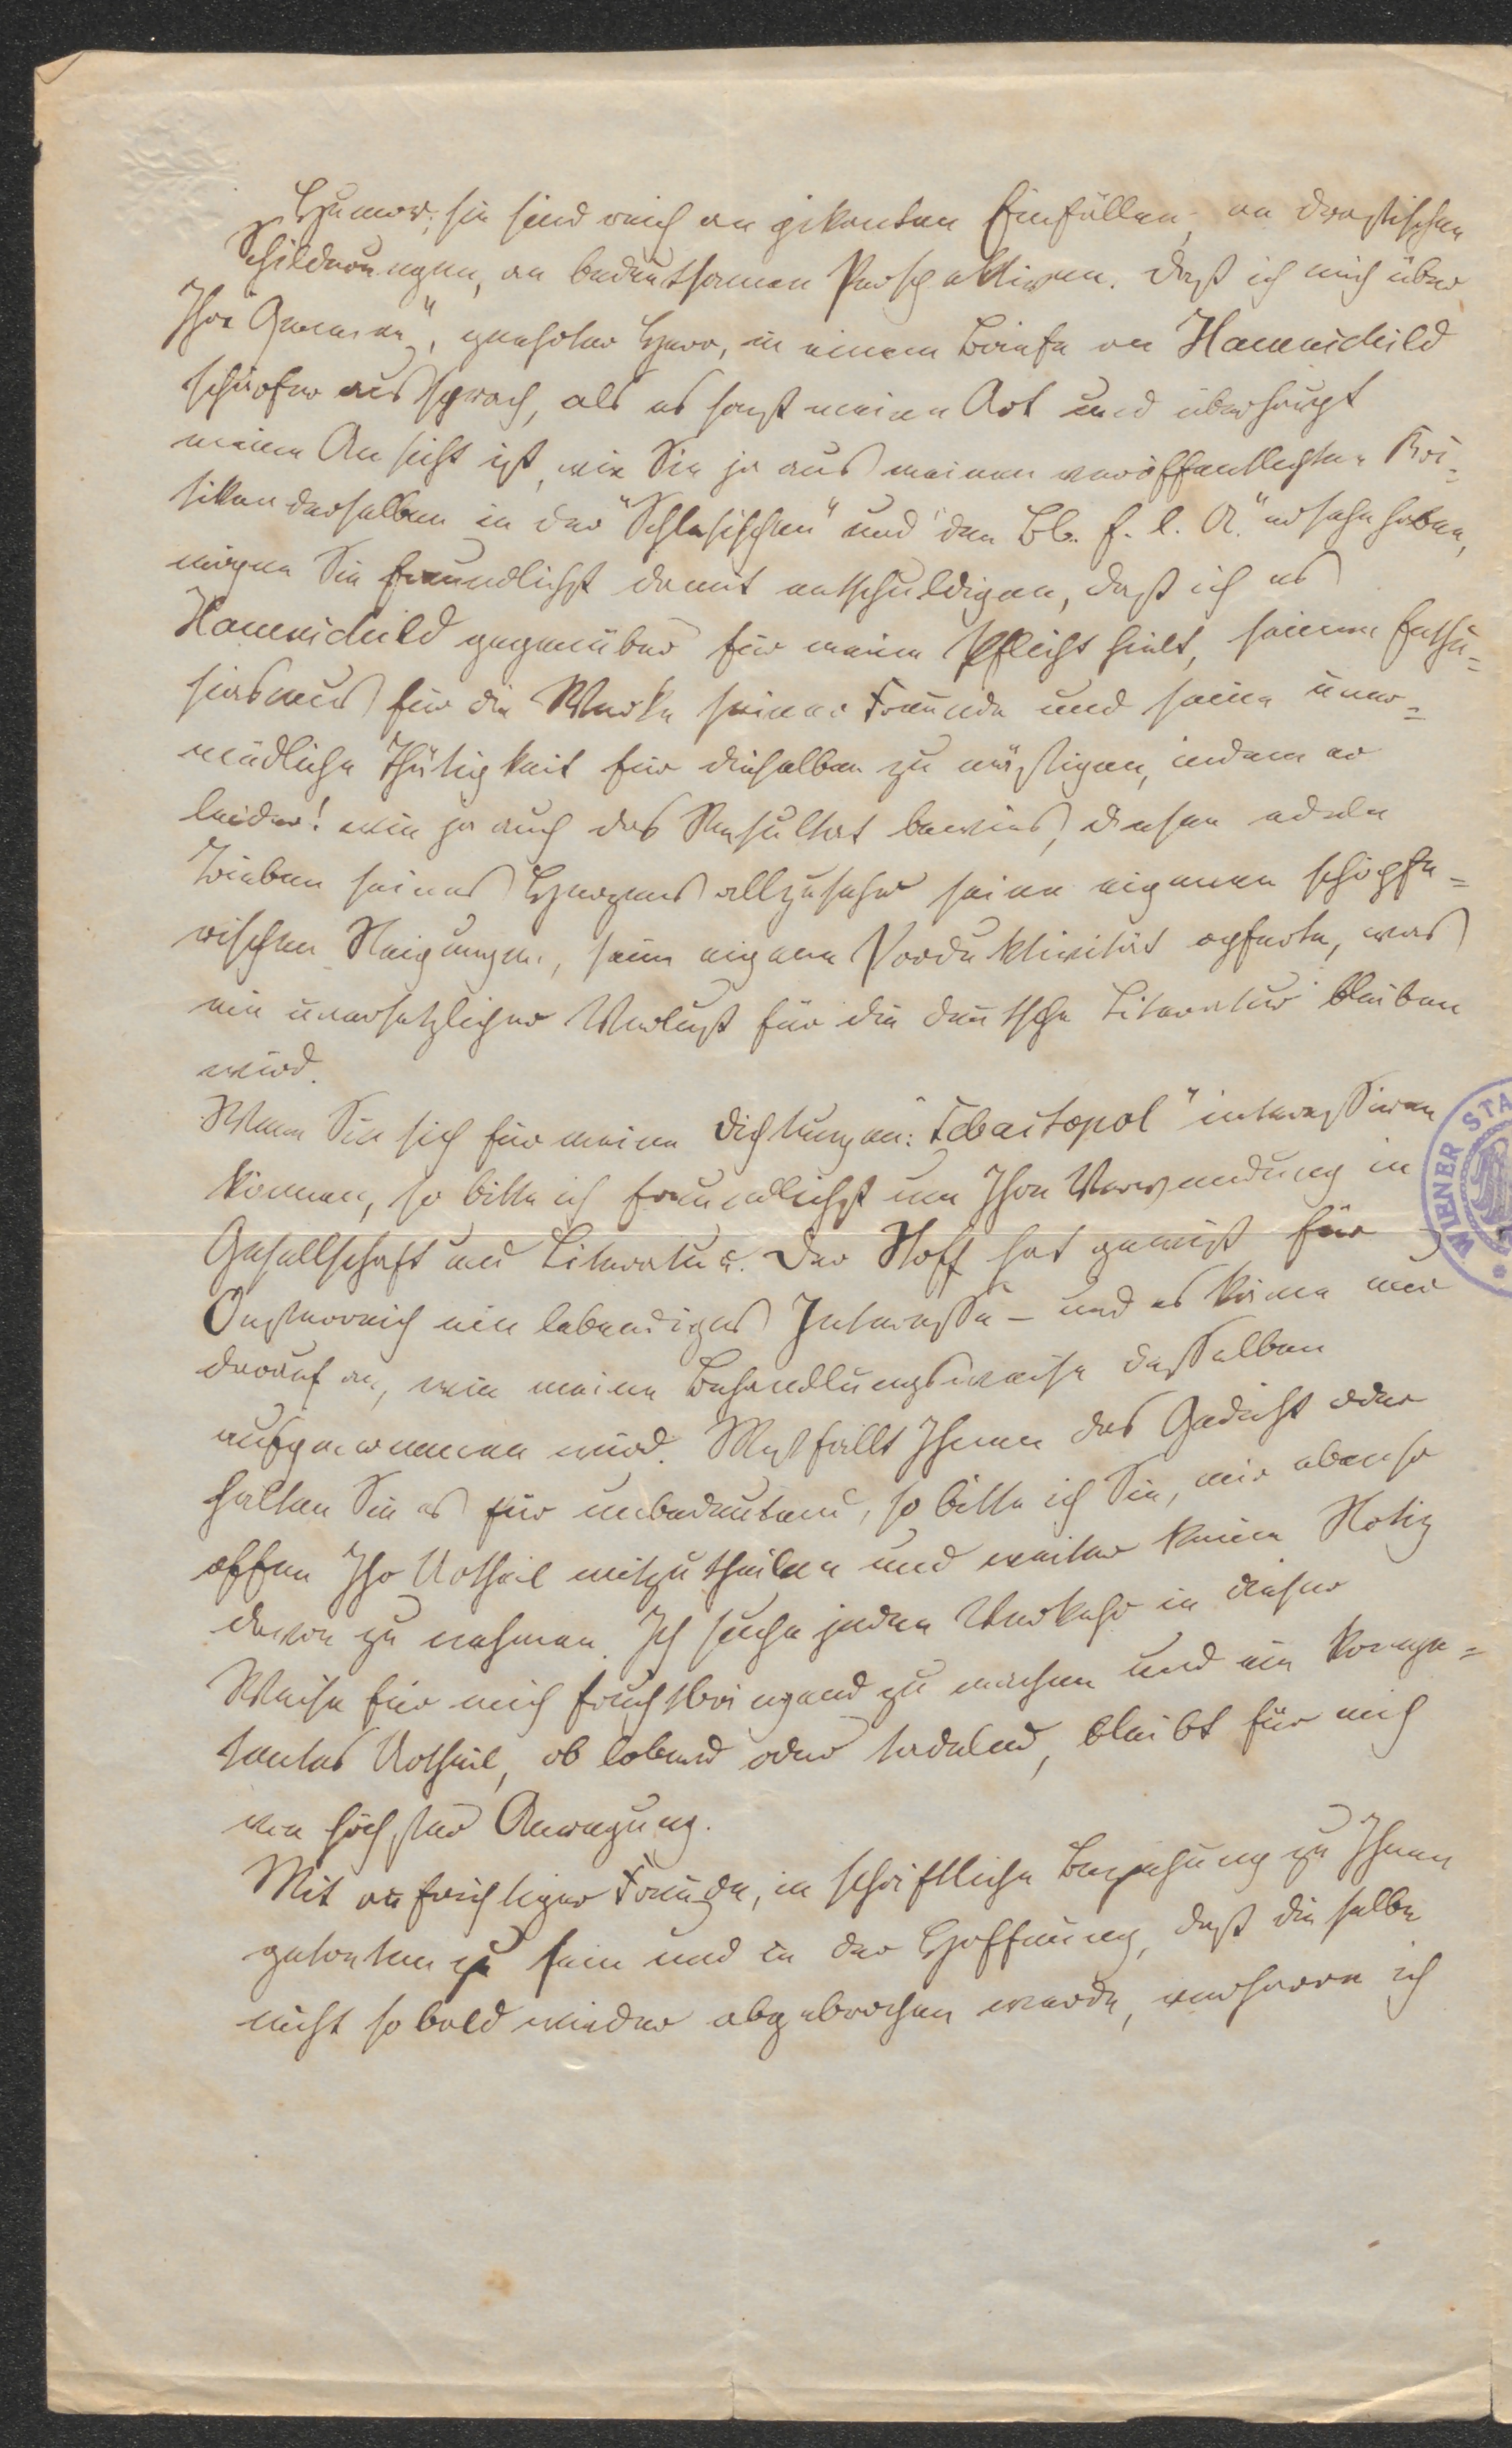 Humor; sie sind reich an pikanten Einfällen, an drastischen
Schilderungen, an bedeutsamen Perspektiven. Daß ich mich über
Ihre, geehrter Herr, in einem Briefe an Hauenschild
schärfer aussprach, als es sonst meine Art und überhaupt
meine Ansicht ist, wie Sie ja aus meinen veröffentlichten Kri-
tiken derselben in der "Schlesischen" und "den Bl. f. l. U." ersehn haben,
mögen Sie freundlichst damit entschuldigen, daß ich es
Hauenschild gegenüber für meine Pflicht hielt, seinen Enthu=
siasmus für die Werke seiner Freunde und seine uner=
müdliche Thätigkeit für dieselben zu mäßigen, indem er
leider! wie ja auch das Resultat bewies, diesen edeln
Trieben seines Herzens allzusehr seine eigenen schöpfe=
rischen Neigungen, seine eigene Produktivität opferte, was
ein unersetzlicher Verlust für die deutsche Literatur bleiben
wird.
Wenn Sie sich für meine Dichtungen: "Sebastopol" interessiren
können, so bitte ich freundlichst um Ihre Verwendung in
Gesellschaft und Literatur. Der Stoff hat gewiß für
Oesterreich ein lebendiges Interesse – und es käme nur
darauf an, wie meine Behandlungsweise desselben
aufgenommen wird. Mißfällt Ihnen das Gedicht oder
halten Sie es für unbedeutend, so bitte ich Sie, mir ebenso
offen Ihr Urtheil mitzutheilen und weiter keine Notiz
davon zu nehmen. Ich suche jeden Verkehr in dieser
Weise für mich fruchtbringend zu machen und ein kompe=
tentes Urtheil, ob lobend oder tadelnd, bleibt für mich
von höchster Anregung.
Mit aufrichtiger Freude, in schriftliche Beziehung zu Ihnen
getreten zu sein und in der Hoffnung, daß dieselbe
nicht sobald wieder abgebrochen werde, verharre ich
WIENER STA